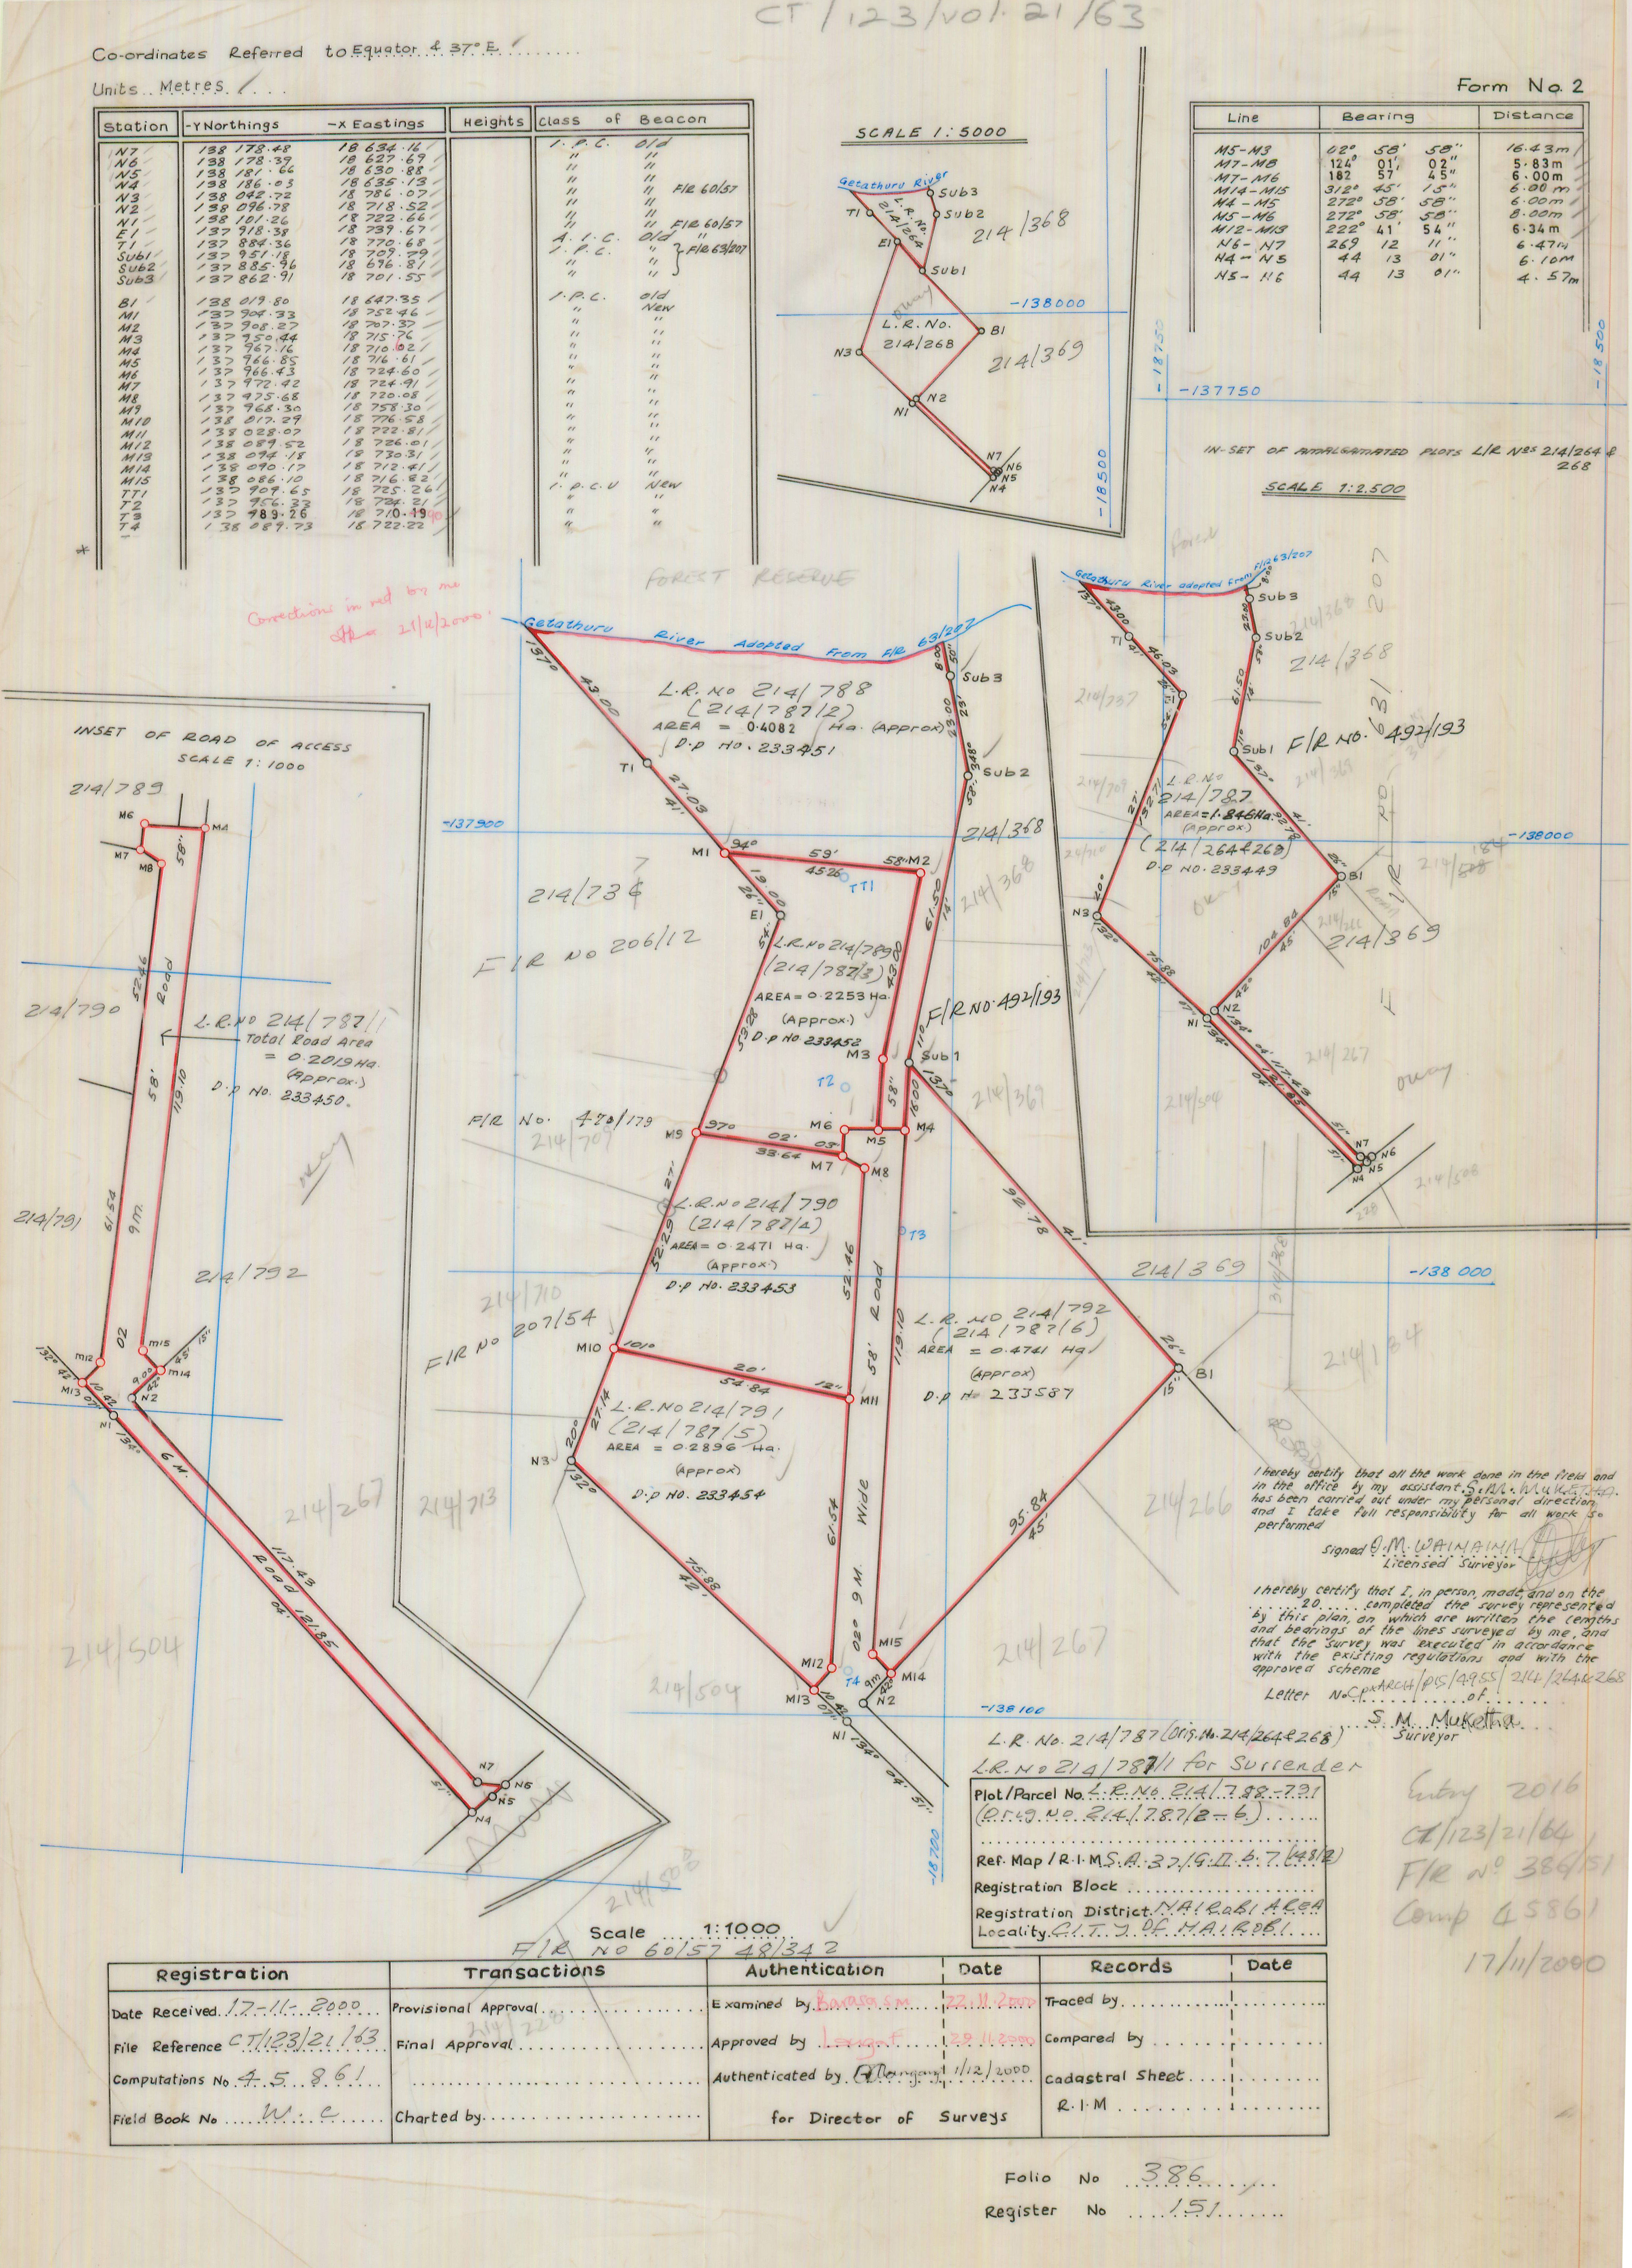 CT/123/Vol. 21/63
Co-ordinates Referred to Equator & 37° E
Units.. Metres
Form No. 2
Station -Y Northings -X Eastings Heights Class of Beacon
N7 138 178.48 18 634.16 I.P.C. Old
N6 138 178.39 18 627.69 " "
N5 138 181.66 18 630.88 " "
N4 138 186.03 18 635.13 " "
N3 138 042.72 18 786.07 " " F/R 60/57
N2 138 096.78 18 718.52 " "
N1 138 101.26 18 722.66 " " F/R 60/57
E1 137 918.38 18 739.67 A.I.C. Old "
T1 137 884.36 18 770.68 I.P.C. "
Sub1 137 951.18 18 709.79 " " F/R 63/207
Sub2 137 885.96 18 696.81 " "
Sub3 137 862.91 18 701.55 " "
B1 138 019.80 18 647.35 I.P.C. Old
M1 137 904.33 18 752.46 " New
M2 137 908.27 18 707.37 " "
M3 137 950.44 18 715.76 " "
M4 137 967.16 18 710.62 " "
M5 137 966.85 18 716.61 " "
M6 137 966.43 18 724.60 " "
M7 137 972.42 18 724.91 " "
M8 137 975.68 18 720.08 " "
M9 137 968.30 18 758.30 " "
M10 138 017.29 18 776.58 " "
M11 138 028.07 18 722.81 " "
M12 138 089.52 18 726.01 " "
M13 138 094.18 18 730.31 " "
M14 138 090.17 18 712.41 " "
M15 138 086.10 18 716.82 " "
TT1 137 909.65 18 725.26 I.P.C.U New
T2 137 956.33 18 724.21 " "
T3 137 989.26 18 710.19 " "
T4 138 089.73 18 722.22 " "
Corrections in red by me
21/11/2000
SCALE 1:5000
Getathuru River
Sub3
T1
L.R. No.
214/264
Sub2
214/368
E1
Sub1
-138000
L.R. No.
214/268
B1
N3
214/369
N2
N1
N7
N6
N5
N4
-18500
Line Bearing Distance
M5-M3 02° 58' 58" 16.43m
M7-M8 124° 01' 02" 5.83m
M7-M6 182 57' 45" 6.00m
M14-M15 312° 45' 15" 6.00m
M4-M5 272° 58' 58" 6.00m
M5-M6 272° 58' 58" 8.00m
M12-M13 222° 41' 54" 6.34m
N6-N7 269 12 11" 6.47m
N4-N5 44 13 01" 6.10m
N5-N6 44 13 01" 4.57m
-18750
-18500
-137750
IN-SET OF AMALGAMATED PLOTS L/R Nos 214/264 &
268
SCALE 1:2,500
forest
Getathuru River adopted from F/R 63/207
137°
43.00
Sub3
8.00
23.00
T1
41'
46.03
Sub2
214/368
214/737
61.50
Sub1
F/R NO. 492/193
137°
L.R. No
214/787
AREA = 1.846 Ha.
(approx)
(214/264 & 268)
D.p NO. 233449
-138000
92.78
41'
26"
B1
15"
N3
20°
132°
104.84
45'
214/369
75.88
42'
42°
N2
N1
134°
117.43
121.85
04'
214/267
214/504
51"
N7
N6
N5
N4
214/508
FOREST RESERVE
Getathuru River Adopted From F/R 63/207
137°
43.00
8.00
Sub3
L.R. No 214/788
(214/787/2)
AREA = 0.4082 Ha. (Approx)
D.p No. 233451
23.00
T1
Sub2
27.03
41'
-137900
214/368
M1
94°
59'
45.26
58"
M2
TT1
19.00
26"
E1
54"
214/736
F/R No 206/12
L.R. No 214/789
(214/787/3)
AREA = 0.2253 Ha.
(Approx.)
D.p No 233452
61.50
F/R NO. 492/193
53.28
M3
Sub 1
T2
58"
16.00
137°
F/R No. 470/179
214/709
M9
97°
02'
33.64
03"
M6
M5
M4
M7
M8
27'
L.R. No 214/790
(214/787/4)
AREA = 0.2471 Ha.
(Approx.)
D.p No. 233453
52.29
T3
52.46
ROAD
92.78
41'
214/369
-138 000
214/710
F/R No 207/54
M10
101°
20'
54.84
12"
M11
58'
119.10
L.R. NO 214/792
(214/787/6)
AREA = 0.4741 Ha
(Approx)
D.p No 233587
26"
B1
15"
214/184
L.R. No 214/791
(214/787/5)
AREA = 0.2896 Ha.
(Approx)
D.p No. 233454
27.14
20°
N3
132°
214/713
61.54
Wide
95.84
45'
214/266
75.88
42'
9 M.
02°
M15
M12
T4
M14
M13
9m
42°
N2
N1
134°
04'
51"
214/504
214/267
-138100
-18700
INSET OF ROAD OF ACCESS
SCALE 1:1000
214/789
M6
M4
M7
M8
58"
52.46
Road
214/790
L.R. NO 214/787/1
Total Road Area
= 0.2019 Ha.
(Approx.)
D.p No. 233450.
58'
119.10
214/791
61.54
9 m.
214/792
02
M15
M12
132°
42'
45'
15"
M13
10.42
07"
9.0
M14
N2
N1
134°
6 M.
214/267
117.43
ROAD
121.85
04'
214/504
51"
N7
N6
N5
N4
214/508
I hereby certify that all the work done in the field and
in the office by my assistant S.M. MUKETHA.
has been carried out under my personal direction
and I take full responsibility for all work so
performed
Signed O.M. WAINAINA
Licensed Surveyor
I hereby certify that I, in person, made, and on the
........20...... completed the survey represented
by this plan, on which are written the lengths
and bearings of the lines surveyed by me, and
that the survey was executed in accordance
with the existing regulations and with the
approved scheme
Letter No. CPxARCH/PIS/4955/214/264&268 of
S. M. Muketha
Surveyor
L.R. No. 214/787 (Orig. No. 214/264 & 268)
L.R. No 214/787/1 for Surrender
Plot/Parcel No. L.R. No 214/788-791
(Orig No 214/787/2-6)
Ref. Map / R.I.M S.A. 37/G.II.b.7 (148/2)
Registration Block
Registration District. NAIROBI AREA
Locality. CITY OF NAIROBI.
Entry 2016
CT/123/21/64
F/R No 386/151
Comp 45861
17/11/2000
Scale 1:1000
F/R NO 60/57 48/342
Registration Transactions Authentication Date Records Date
Date Received. 17-11-2000 Provisional Approval Examined by Barasa S.M 22.11.2000 Traced by
File Reference CT/123/21/63 Final Approval Approved by 29.11.2000 Compared by
Computations No. 45861 Authenticated by 1/12/2000 Cadastral Sheet
Field Book No W.C Charted by for Director of Surveys R.I.M
Folio No 386
Register No 151